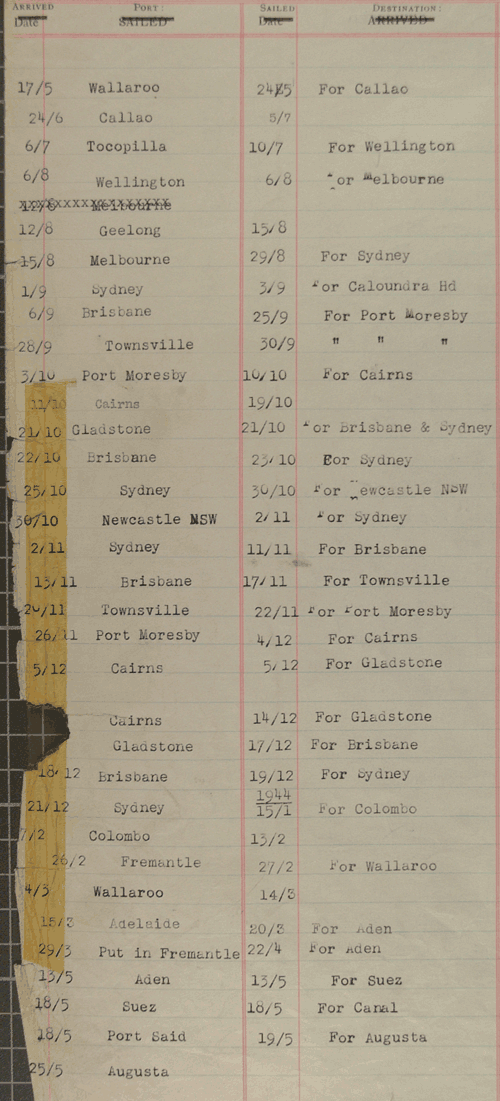 ARRIVED PORT: SAILED DESTINATION:
Date SAILED Date ARRIVED
17/5 Wallaroo 24/5 For Callao
24/6 Callao 5/7
6/7 Tocopilla 10/7 For Wellington
6/8 Wellington 6/8 For Melbourne
12/8 Melbourne
12/8 Geelong 15/8
15/8 Melbourne 29/8 For Sydney
1/9 Sydney 3/9 For Caloundra Hd
6/9 Brisbane 25/9 For Port Moresby
28/9 Townsville 30/9 " " "
3/10 Port Moresby 10/10 For Cairns
11/10 Cairns 19/10
21/10 Gladstone 21/10 For Brisbane & Sydney
22/10 Brisbane 23/10 For Sydney
25/10 Sydney 30/10 For Newcastle NSW
30/10 Newcastle NSW 2/11 For Sydney
2/11 Sydney 11/11 For Brisbane
13/11 Brisbane 17/11 For Townsville
20/11 Townsville 22/11 For Port Moresby
26/11 Port Moresby 4/12 For Cairns
5/12 Cairns 5/12 For Gladstone
Cairns 14/12 For Gladstone
Gladstone 17/12 For Brisbane
18/12 Brisbane 19/12 For Sydney
1944
21/12 Sydney 15/1 For Colombo
7/2 Colombo 13/2
26/2 Fremantle 27/2 For Wallaroo
4/3 Wallaroo 14/3
15/3 Adelaide 20/3 For Aden
29/3 Put in Fremantle 22/4 For Aden
13/5 Aden 13/5 For Suez
18/5 Suez 18/5 For Canal
18/5 Port Said 19/5 For Augusta
25/5 Augusta